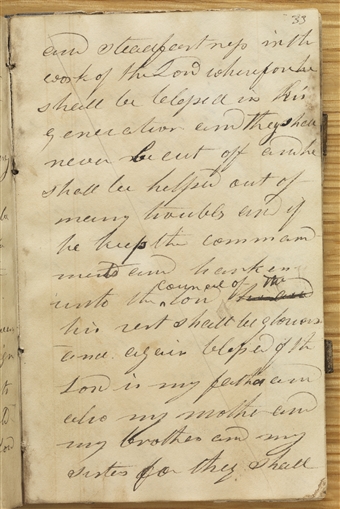 33
and steadfastness in the
work of the Lord wherefore he
shall be blessed in his
generation and they shall
never be cut off and he
shall be helped out of
many troubles and if
he keep the command
ments and hearken
unto the council of the Lord
his rest shall be glorious
and again blessed of the
Lord is my father and
also my mother and
my brother and my
sister for they shall